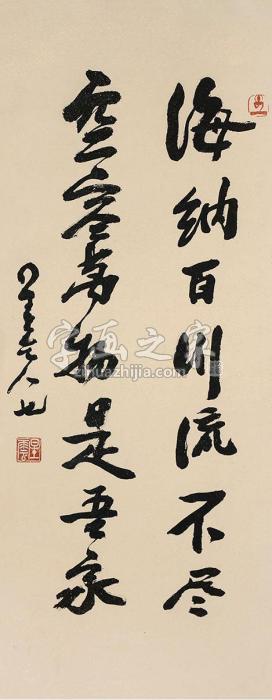 海纳百川流不尽
空容萬物是吾家
字画之家
zihuazhijia.com
星雲